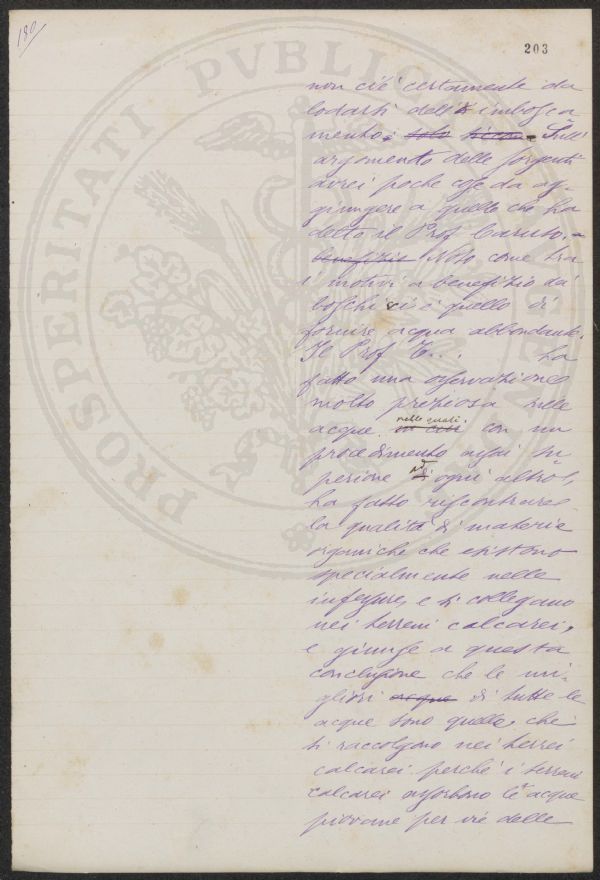 180
203
PROSPERITATI PVBLICAE
non ci è certamente da
lodarsi dell' imbosca
mento. solo Sull'
argomento delle sorgenti
avrei poche cose da ag-
giungere a quello che ha
detto il Prof. Caruso.
benefizio Noto, come tra
i motivi a benefizio dei
boschi ci è quello di
fornire acqua abbondante.
Il Prof. T... ha
fatto una osservazione
molto preziosa sulle
acque nelle quali con un
procedimento assai su
periore ad ogni altro,
ha fatto riscontrare
la qualità di materie
organiche che esistono
specialmente nelle
e si collegano
nei terreni calcarei,
e giunge a questa
conclusione che le mi-
gliori acque di tutte le
acque sono quelle, che
si raccolgono nei terreni
calcarei perché i terreni
calcarei assorbono le acque
piovane per vie delle